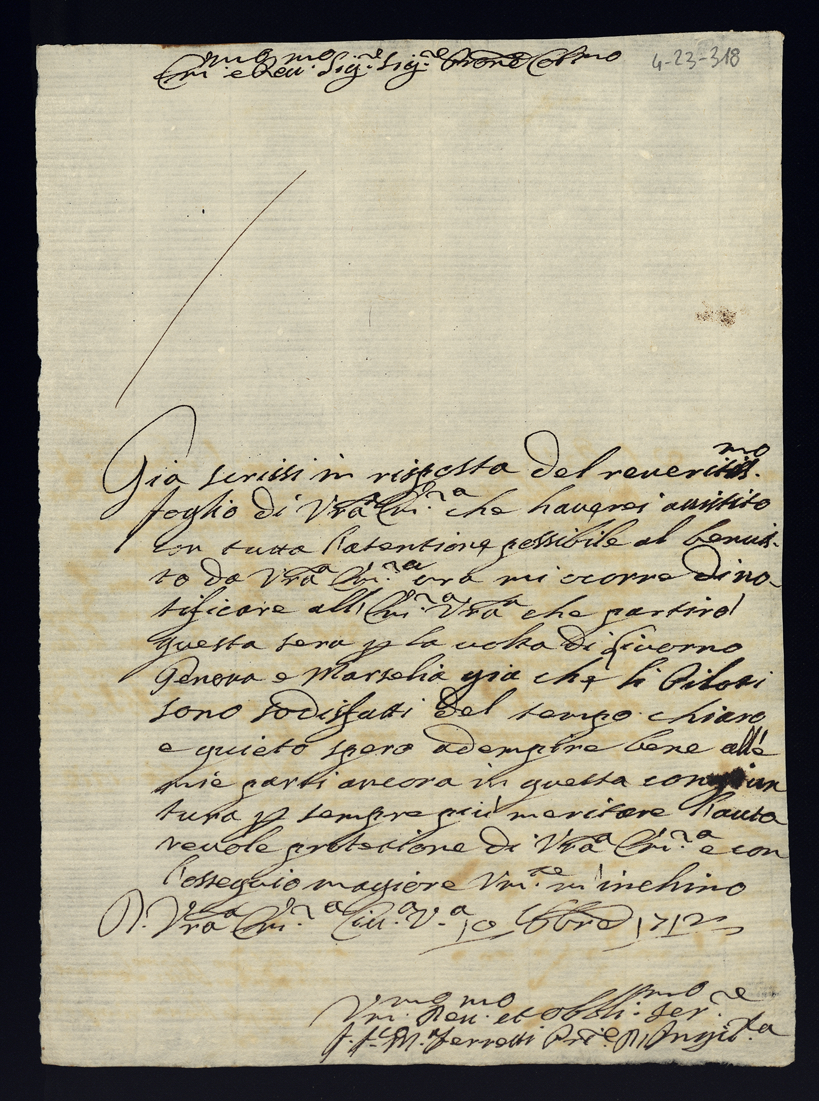 Em.mo e Reu.mo Sig.re Sig.re Prone Col.mo 4-23-318
Gia scrissi in risposta del reueritis.mo
foglio di Vra Em.za che hauerei assistito
con tutta l'atentione possibile al benuis-
to da Vra Em.za ora mi ocorre di no-
tificare all' Em.za Vra che partirà
questa sera p la uolta di Liuorno
Genoua e Marselia gia che li Piloti
sono sodisfatti del tempo chiaro
e quieto spero adempire bene alle
mie parti ancora in questa congiun
tura p sempre più meritare l'auta
reuole protetione di Vra Em.za e con
l'ossequio magiore Vm.te m'inchino
D. Vra Em.za Ciu.a V.a 10 1712
Vm. Deu.mo et obbli.mo Ser.re
F. Ferretti